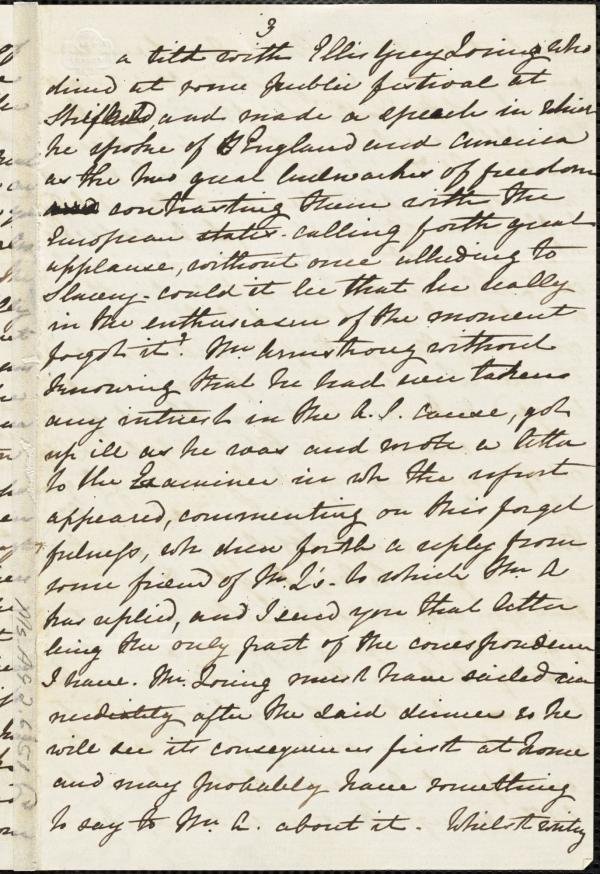 3
a tilt with Ellis Grey Loring who
dined at some public festival at
Sheffield, and made a speech in which
he spoke of England and America
as the two great bulwarks of freedom
contrasting them with the
European states - calling forth great
applause, without once alluding to
Slavery - could it be that he really
in the enthusiasm of the moment
forgot it? Mr Armstrong without
knowing that he had ever taken
any interest in the A. S. cause, got
up ill as he was and wrote a letter
to the Examiner in wh the report
appeared, commenting on this forget
fulness, wh drew forth a reply from
some friend of Mr L's. to which Mr A
has replied, and I send you that letter
being the only part of the correspondence
I have. Mr. Loring must have sailed im
mediately after the said dinner so he
will see its consequences first at home
and may probably have something
to say to Mr A. about it. Whilst writing